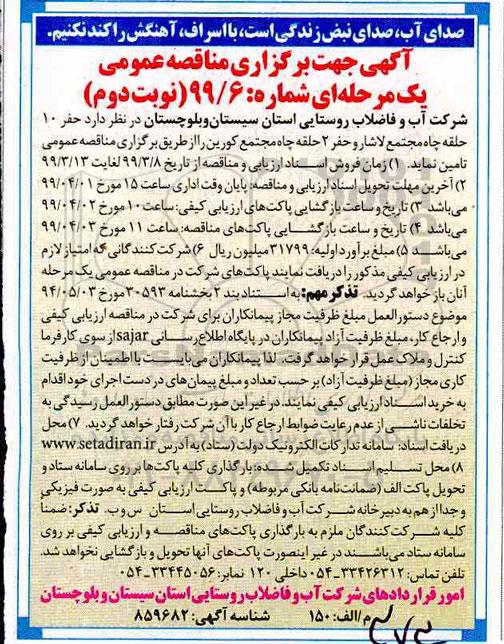 صدای آب، صدای نبض زندگی است، با اسراف، آهنگش را کند نکنیم.
آگهی جهت برگزاری مناقصه عمومی
یک مرحله‌ای شماره: ۹۹/۶ (نوبت دوم)
شرکت آب و فاضلاب روستایی استان سیستان‌وبلوچستان در نظر دارد حفر ۱۰
حلقه چاه مجتمع لاشار و حفر ۲ حلقه چاه مجتمع کورین را از طریق برگزاری مناقصه عمومی
تامین نماید. ۱) زمان فروش اسناد ارزیابی و مناقصه از تاریخ ۹۹/۳/۸ لغایت ۹۹/۳/۱۳
۲) آخرین مهلت تحویل اسناد ارزیابی و مناقصه: پایان وقت اداری ساعت ۱۵ مورخ ۹۹/۰۴/۰۱
می‌باشد ۳) تاریخ و ساعت بازگشایی پاکت‌های ارزیابی کیفی: ساعت ۱۰ مورخ ۹۹/۰۴/۰۲
می‌باشد ۴) تاریخ و ساعت بازگشایی پاکت‌های مناقصه: ساعت ۱۱ مورخ ۹۹/۰۴/۰۳
می‌باشد ۵) مبلغ برآورد اولیه: ۳۱۷۹۹ میلیون ریال ۶) شرکت کنندگانی که امتیاز لازم
در ارزیابی کیفی مذکور را دریافت نمایند پاکت‌های شرکت در مناقصه عمومی یک مرحله
آنان باز خواهد گردید. تذکر مهم: به استناد بند ۲ بخشنامه ۳۰۵۹۳ مورخ ۹۴/۰۵/۰۳
موضوع دستورالعمل مبلغ ظرفیت مجاز پیمانکاران برای شرکت در مناقصه ارزیابی کیفی
و ارجاع کار، مبلغ ظرفیت آزاد پیمانکاران در پایگاه اطلاع رسانی sajar از سوی کارفرما
کنترل و ملاک عمل قرار خواهد گرفت. لذا پیمانکاران می‌بایست با اطمینان از ظرفیت
کاری مجاز (مبلغ ظرفیت آزاد) بر حسب تعداد و مبلغ پیمان‌های در دست اجرای خود اقدام
به خرید اسناد ارزیابی کیفی نمایند. در غیر این صورت مطابق دستورالعمل رسیدگی به
تخلفات ناشی از عدم رعایت ضوابط ارجاع کار با آن شرکت رفتار خواهد گردید. ۷) محل
دریافت اسناد: سامانه تدارکات الکترونیک دولت (ستاد) به آدرس www.setadiran.ir
۸) محل تسلیم اسناد تکمیل شده: بارگذاری کلیه پاکت‌ها بر روی سامانه ستاد و
تحویل پاکت الف (ضمانت‌نامه بانکی مربوطه) و پاکت ارزیابی کیفی به صورت فیزیکی
و جدا از هم به دبیرخانه شرکت آب و فاضلاب روستایی استان س و ب. تذکر: ضمنا
کلیه شرکت کنندگان ملزم به بارگذاری پاکت‌های مناقصه و ارزیابی کیفی بر روی
سامانه ستاد می‌باشند در غیر اینصورت پاکت‌های آنها تحویل و بازگشایی نخواهد شد.
تلفن تماس: ۳۳۴۲۶۳۱۲-۰۵۴ داخلی ۱۲۰ نمابر: ۳۳۴۴۵۰۵۶-۰۵۴
امور قراردادهای شرکت آب و فاضلاب روستایی استان سیستان و بلوچستان
م/الف: ۱۵۰ شناسه آگهی: ۸۵۹۶۸۲